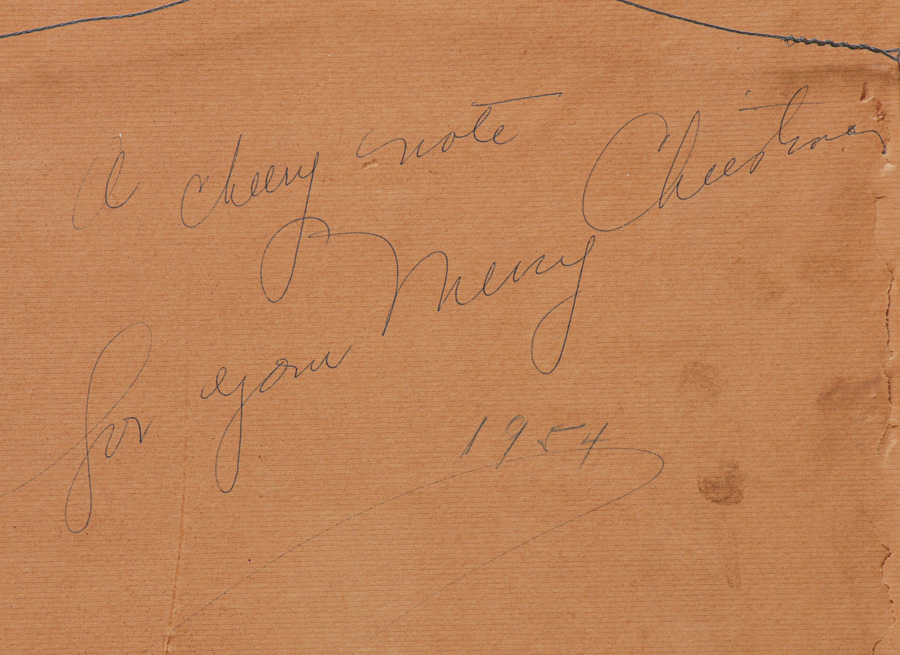 A cheery note
for your Merry Christmas
1954